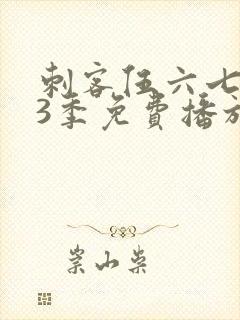 刺客伍六七
3季免費播放
崇山柴